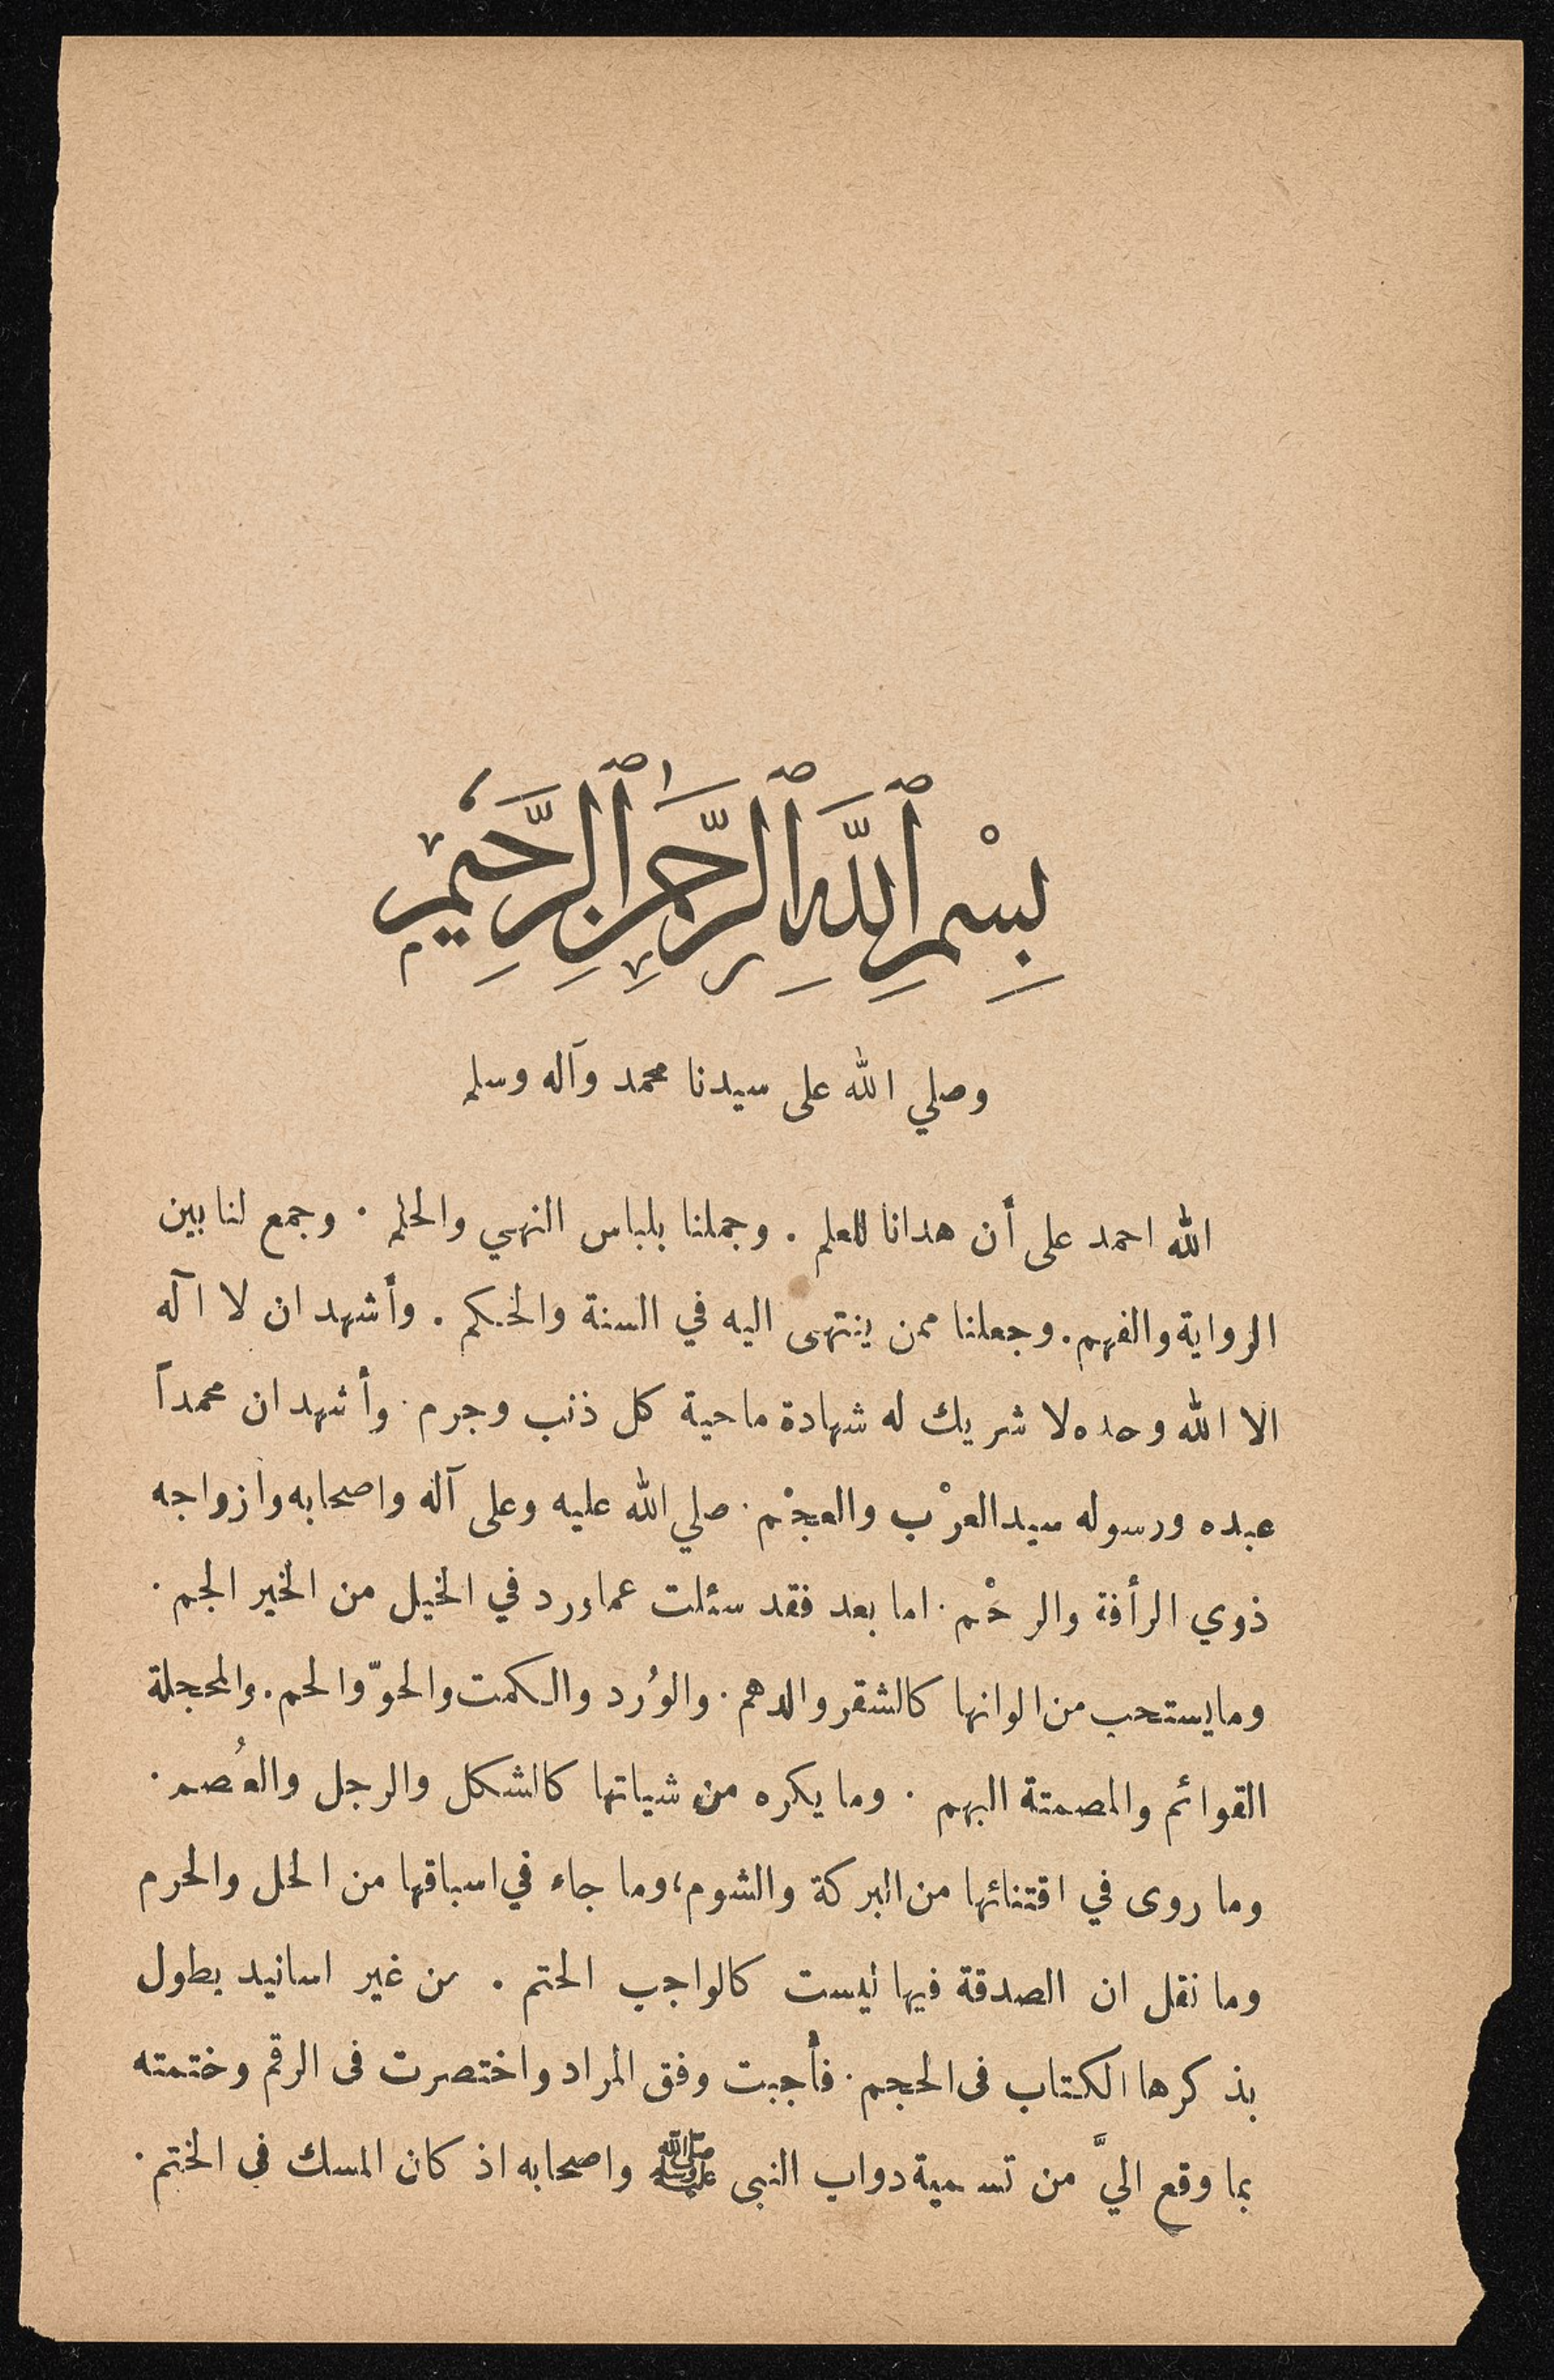 بِسْمِ ٱللَّهِ ٱلرَّحْمَٰنِ ٱلرَّحِيمِ
وصلي الله على سيدنا محمد وآله وسلم
الله احمد على أن هدانا للعلم . وجملنا بلباس النهي والحلم . وجمع لنا بين
الرواية والفهم . وجعلنا ممن ينتهى اليه في السنة والحكم . وأشهد ان لا آله
الا الله وحده لا شريك له شهادة ماحية كل ذنب وجرم . وأشهد ان محمداً
عبده ورسوله سيد العرْب والعجْم . صلي الله عليه وعلى آله واصحابه وازواجه
ذوي الرأفة والرحْم . اما بعد فقد سئلت عما ورد في الخيل من الخير الجم .
وما يستحب من الوانها كالشقر والدهم . والوُرد والكمت والحوّ والحم . والمحجلة
القوائم والمصمتة البهم . وما يكره من شياتها كالشكل والرجل والعُصم .
وما روى في اقتنائها من البركة والشوم، وما جاء في اسباقها من الحل والحرم
وما نقل ان الصدقة فيها ليست كالواجب الحتم . من غير اسانيد يطول
بذكرها الكتاب فى الحجم . فأجبت وفق المراد واختصرت فى الرقم وختمته
بما وقع اليَّ من تسمية دواب النبى ﷺ واصحابه اذ كان المسك في الختم .